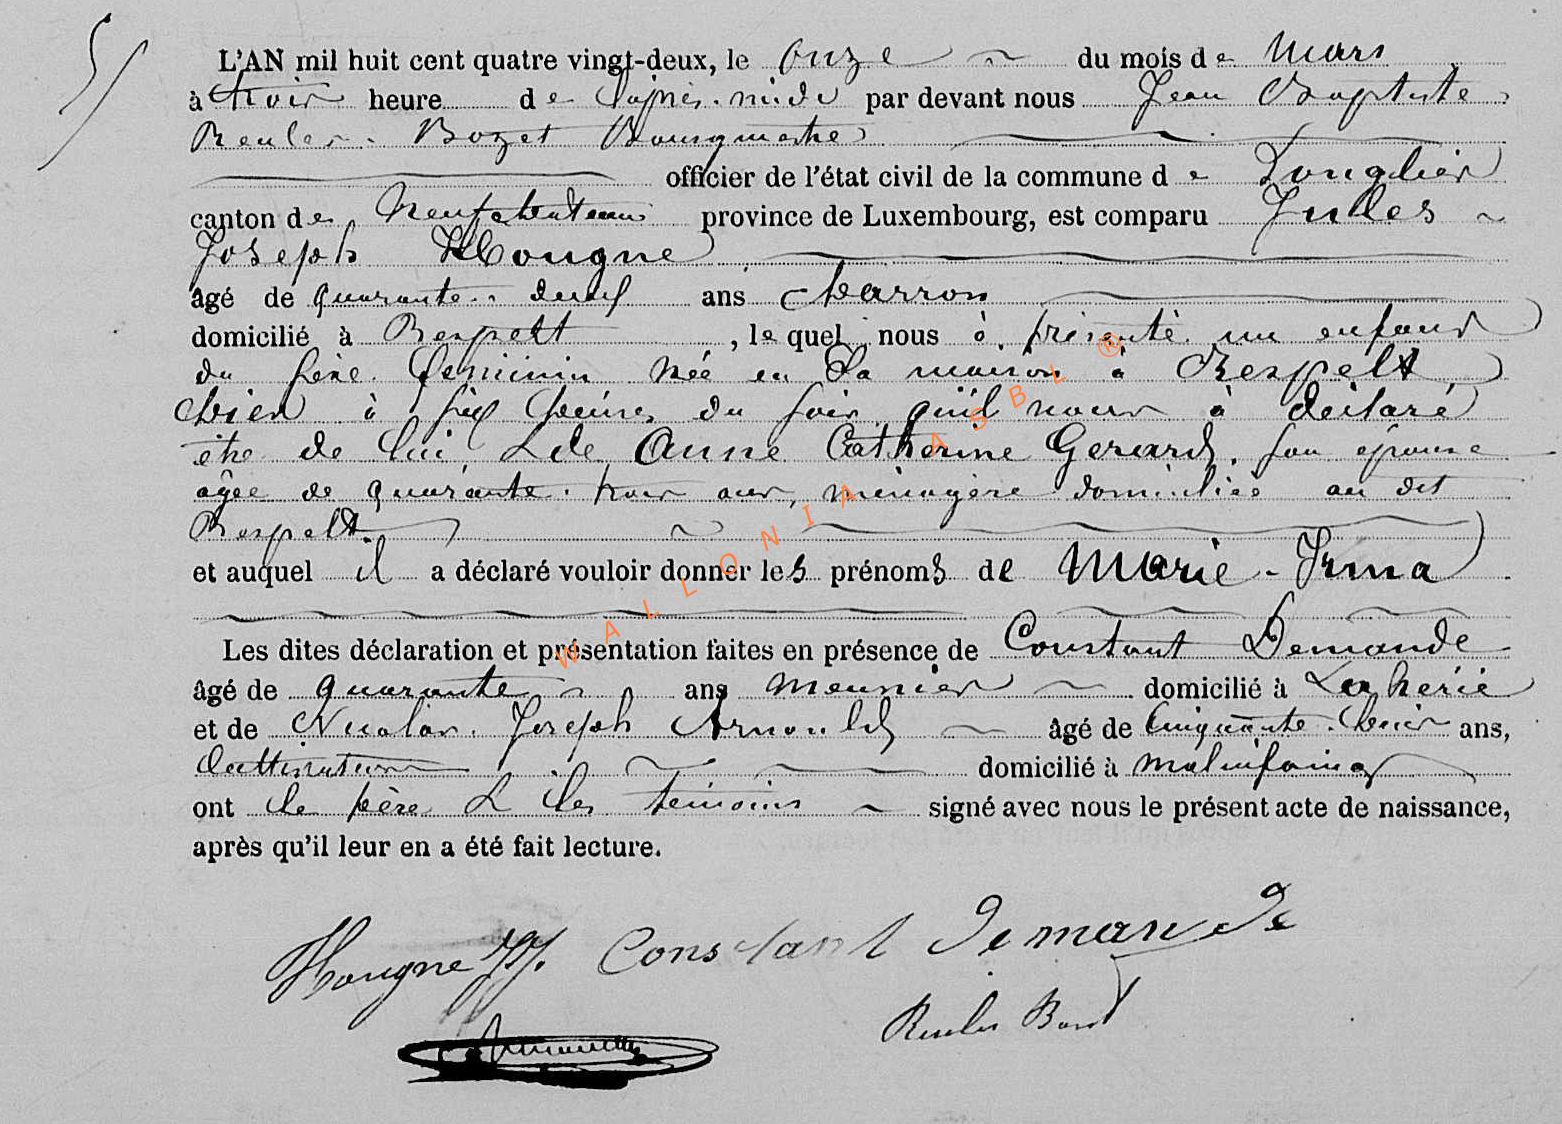 5/
L'AN mil huit cent quatre vingt-deux, le onze du mois de Mars
à trois heure de l'après-midi par devant nous Jean Baptiste
Reuler-Bozet Bourgmestre
officier de l'état civil de la commune de Longlier
canton de Neufchateau province de Luxembourg, est comparu Jules
Joseph Hougne
âgé de quarante-deux ans charron
domicilié à Respelt, lequel nous à présenté un enfant
du sexe féminin née en sa maison à Respelt
hier à six heures du soir qu'il nous à déclaré
être de lui & de Anne Catherine Gerard, son épouse
agée de quarante-trois ans, ménagère domiciliée au dit
Respelt
et auquel il a déclaré vouloir donner les prénoms de Marie-Irma
Les dites déclaration et présentation faites en présence de Constant Demande
âgé de quarante ans meunier domicilié à Lahérie
et de Nicolas Joseph Arnould âgé de cinquante-deux ans,
cultivateur domicilié à Molinfaing
ont le père & les témoins signé avec nous le présent acte de naissance,
après qu'il leur en a été fait lecture.
Hougne JJ. Constant Demande
Reuler Bozet
WALLONIA ASBL ®